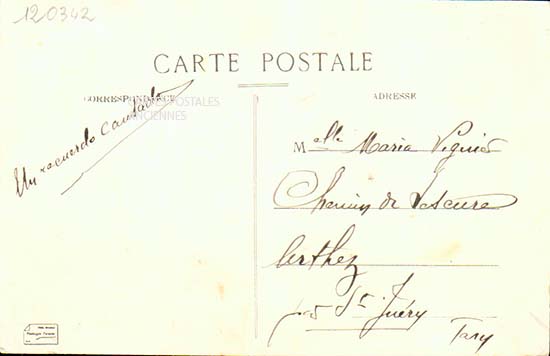 120342
CARTE POSTALE
CORRESPONDANCE
CARTES POSTALES
ANCIENNES
ADRESSE
Un recuerdo
Melle Maria Viguier
Chemin de Lescure
Arthez
par St Juéry
Tarn